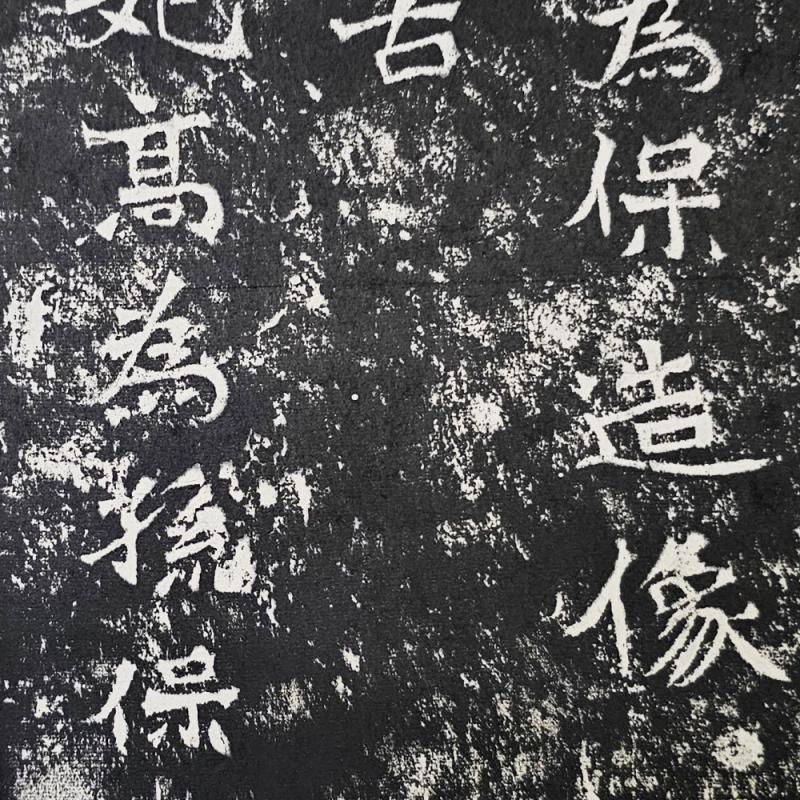 為保造像
古
妃高為孫保